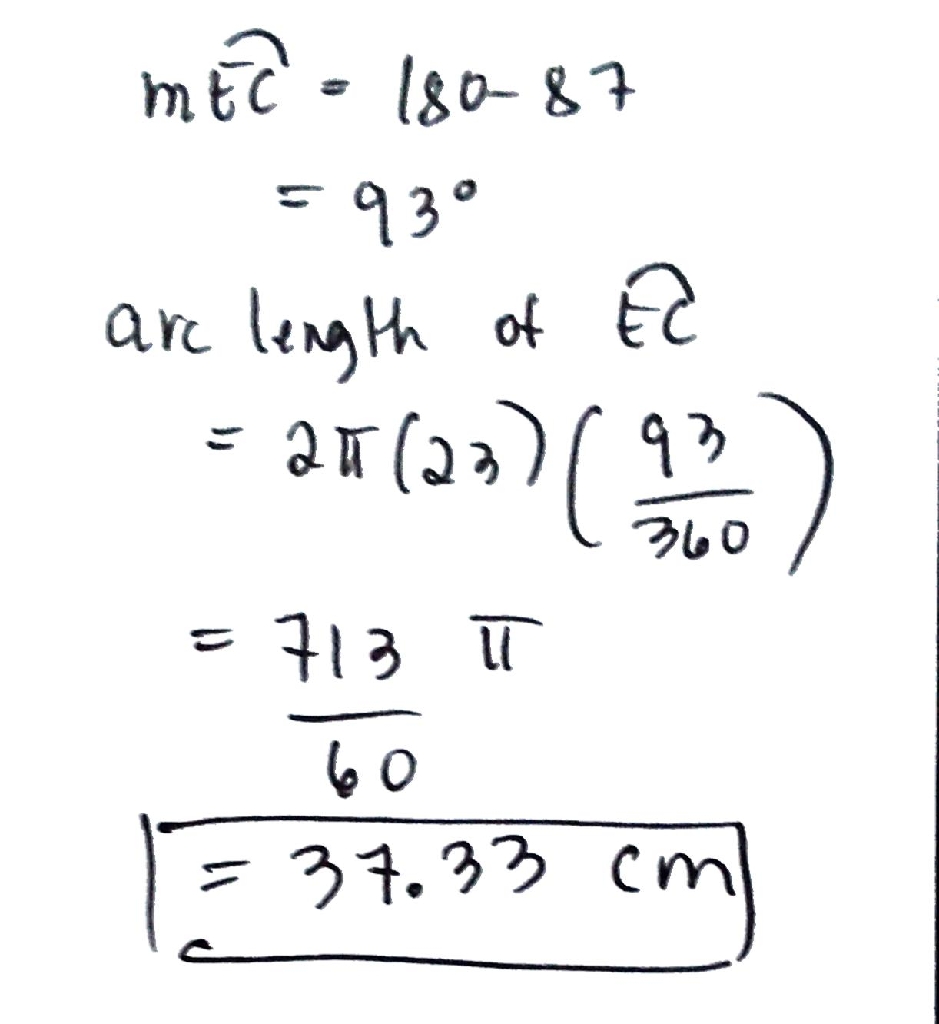 mEC = 180-87
= 93°
arc length of EC
= 2π(23)(93/360)
= 713 π
60
= 37.33 cm